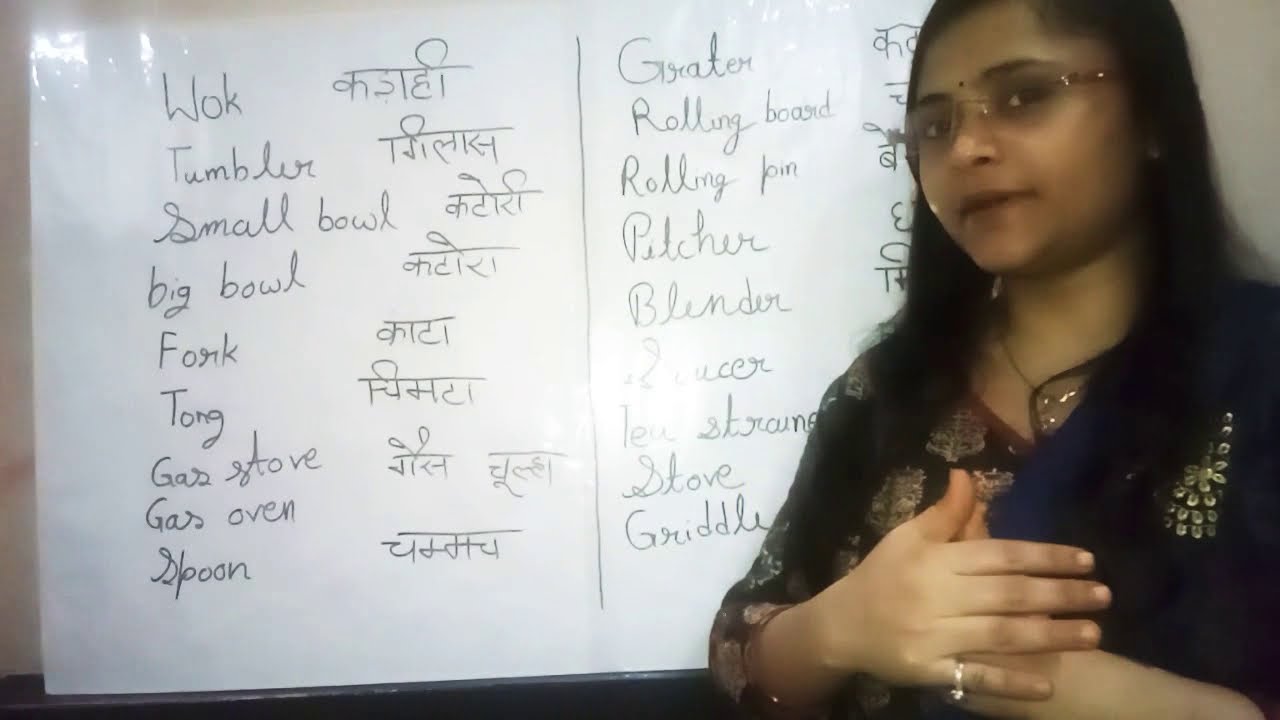 Wok कड़ाही
Tumbler गिलास
Small bowl कटोरी
big bowl कटोरा
Fork काटा
Tong चिमटा
Gas stove गैस चूल्हा
Gas oven
Spoon चम्मच
Grater
Rolling board
Rolling pin
Pitcher
Blender
Saucer
Tea
Stove
Griddle